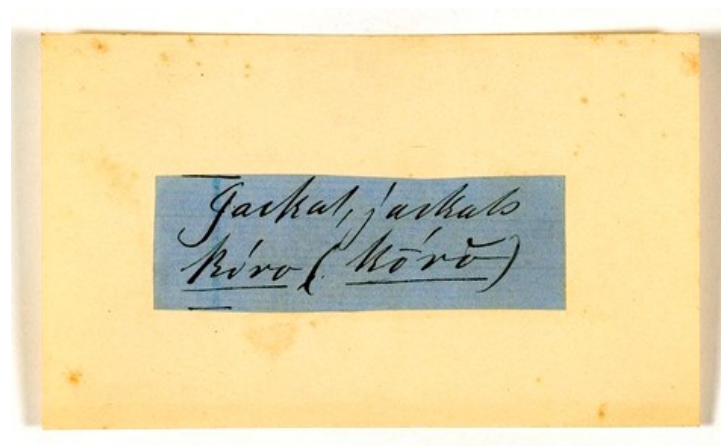 Jackal, jackals
kóro (kōrŏ)